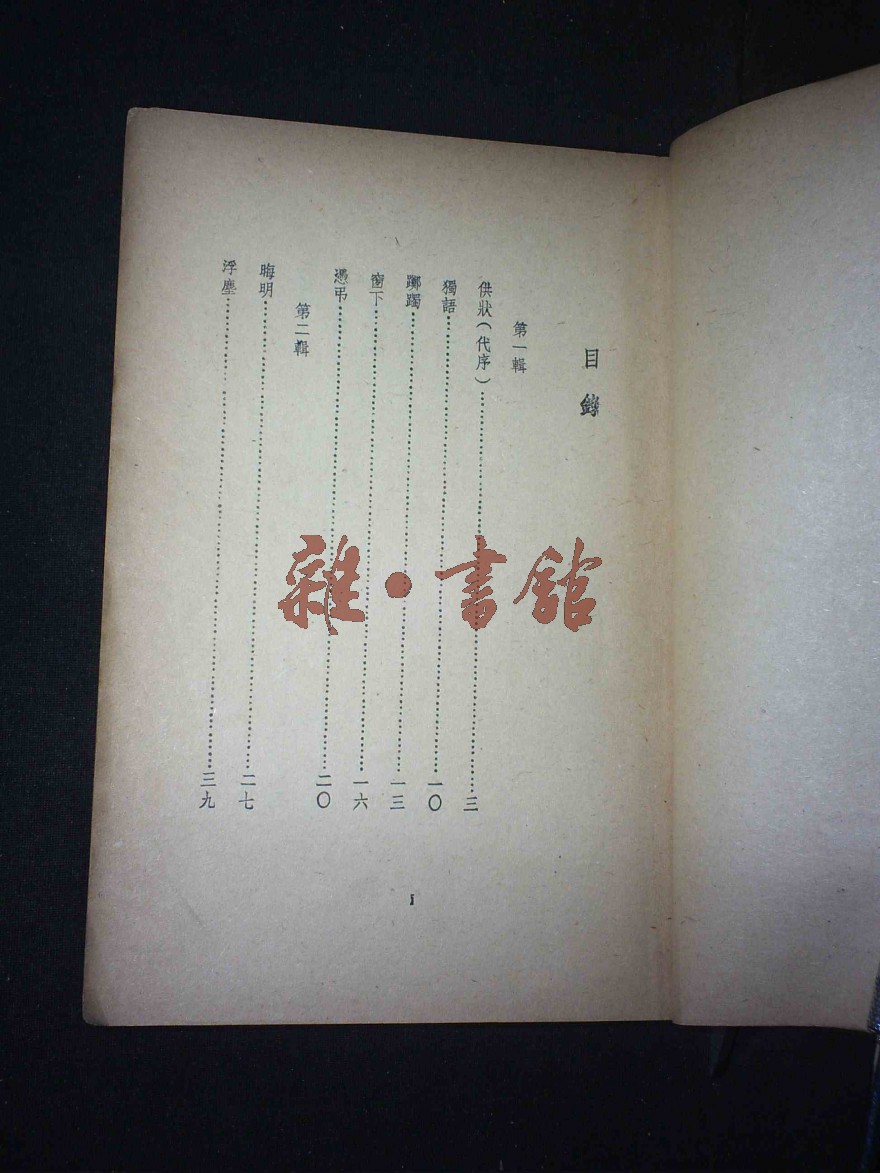 目錄
第一輯
供狀(代序)……三
獨語……一〇
躑躅……一三
窗下……一六
憑弔……二〇
第二輯
晦明……二七
浮塵……三九
I
雜·書館